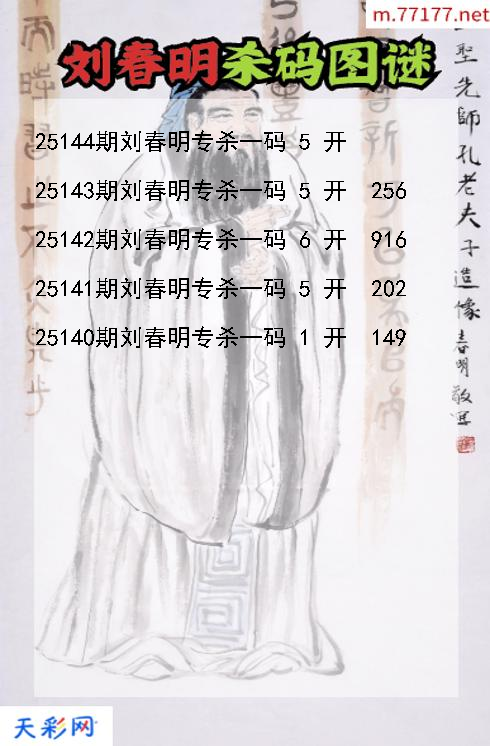 m.77177.net
刘春明杀码图谜
25144期刘春明专杀一码 5 开
25143期刘春明专杀一码 5 开 256
25142期刘春明专杀一码 6 开 916
25141期刘春明专杀一码 5 开 202
25140期刘春明专杀一码 1 开 149
聖先師孔老夫子造像春明敬寫
天彩网